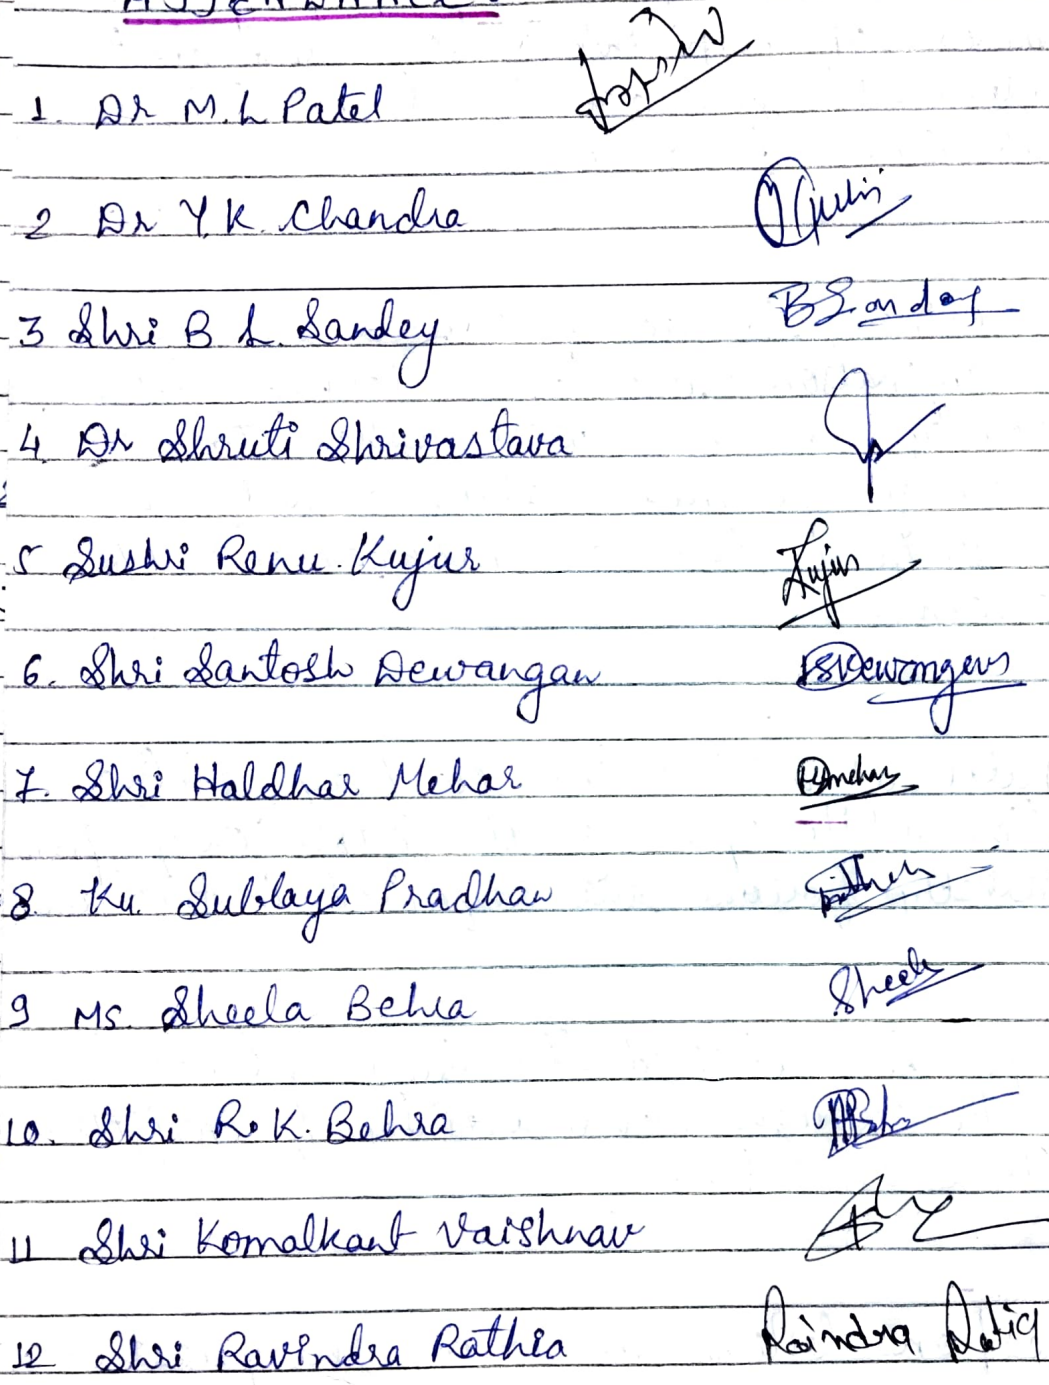 ATTENDANCE
1. Dr M.L Patel
2 Dr Y.K. Chandra
3 Shri B L. Sandey BSandey
4 Dr Shruti Shrivastava
5 Sushri Renu Kujur Kujur
6. Shri Santosh Dewangan SDewangan
7. Shri Haldhar Mehar Hmehar
8. Ku. Sublaya Pradhan
9 Ms. Sheela Behra Sheela
10. Shri R.K. Behra
11 Shri Komalkant Vaishnav
12 Shri Ravindra Rathia